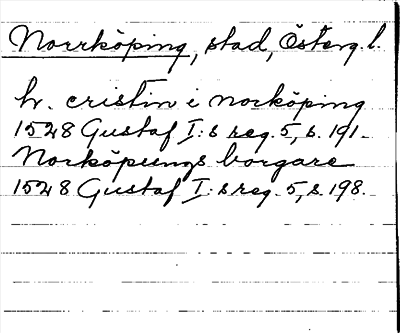 Norrköping, stad, Österg. l.
hr. cristin i norköping
1528 Gustaf I:s reg. 5, s. 191.
Norköpungs borgare
1528 Gustaf I:s reg. 5, s. 198.